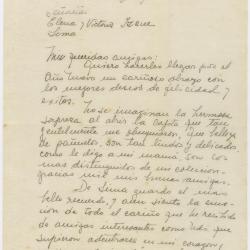 Señoritas
Elena y Victoria Izcue
Lima
Mis queridas amigas:
Quiero hacerles llegar por el
Año Nuevo un cariñoso abrazo con
los mejores deseos de felicidad y
éxitos.
No se imaginan la hermosa
sorpresa al abrir la cajita que tan
gentilmente me obsequiaron, que belleza
de pañuelos, son tan lindos y delicados
como le digo a mi mamá, son los
mas distinguidos de mi coleccion.
gracias mil mis buenas amigas.
De Lima guardo el mas
bello recuerdo, y aun siento la emo-
ción de todo el cariño que he recibido
de amigas interesantes como Uds que
supieron adentrarse en mi corazon,